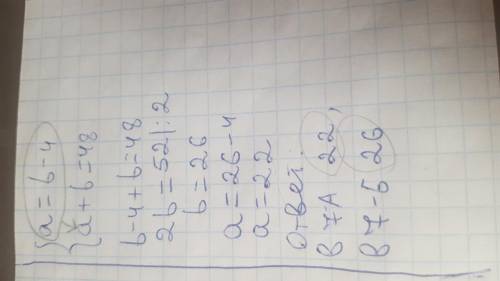 {a = b - 4
{a + b = 48
b - 4 + b = 48
2b = 52 | : 2
b = 26
a = 26 - 4
a = 22
Ответ:
в 7А 22,
в 7-Б 26